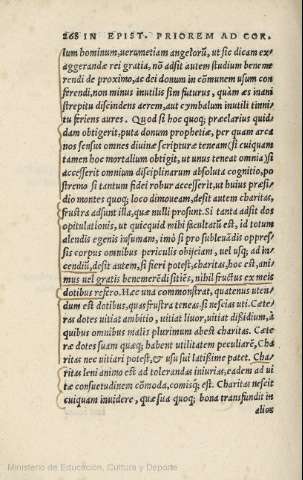 268 IN EPIST. PRIOREM AD COR.
lum hominum, uerumetiam angelorū, ut sic dicam ex⸗
aggerandæ rei gratia, nō adsit autem studium bene me
rendi de proximo, ac dei donum in cōmunem usum con
ferendi, non minus inutilis sim futurus, quàm æs inani
strepitu discindens aerem, aut cymbalum inutili tinni⸗
tu feriens aures. Quod si hoc quoq; præclarius quid⸗
dam obtigerit, puta donum prophetiæ, per quam arca
nos sensus omnes diuinæ scripturæ teneam (si cuiquam
tamen hoc mortalium obtigit, ut unus teneat omnia) si
accesserit omnium disciplinarum absoluta cognitio, po
stremo si tantum fidei robur accesserit, ut huius præsi⸗
dio montes quoq; loco dimoueam, desit autem charitas,
frustra adsunt illa, quæ nulli prosunt. Si tanta adsit do⸗
opitulationis, ut quicquid mihi facultatū est, id totum
alendis egenis insumam, imò si pro subleuādis oppres⸗
sis corpus omnibus periculis obijciam, uel usq; ad in⸗
cendiū, desit autem, si fieri potest, charitas, hoc est, ani⸗
mus uel gratis benemerēdi sitiēs, nihil fructus ex meis
dotibus refero. Hæc una commonstrat, quatenus uten⸗
dum est dotibus, quas frustra teneas si nescias uti. Cæte
ras dotes uitiat ambitio, uitiat liuor, uitiat dissidium, à
quibus omnibus malis plurimum abest charitas. Cæte
ræ dotes suam quæq; habent utilitatem peculiarē, Cha
ritas nec uitiari potest, & usu sui latissime patet. Cha⸗
ritas leni animo est ad tolerandas iniurias, eadem ad ui
tæ consuetudinem cōmoda, comisq; est. Charitas nescit
cuiquam inuidere, quæ sua quoq; bona transfundit in
alios
Ministerio de Educación, Cultura y Deporte